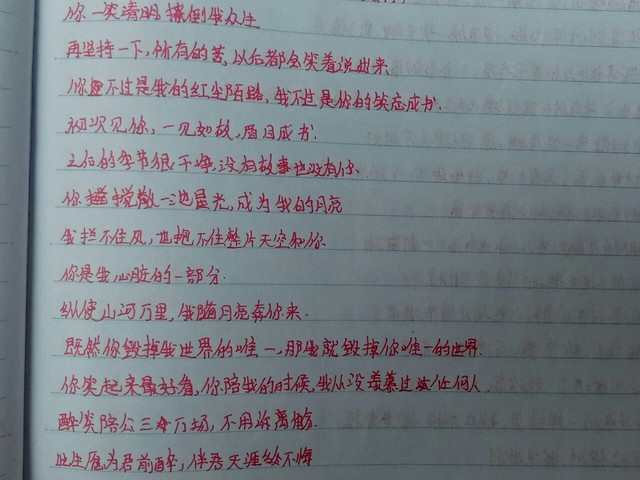 你一笑清明,撩倒我众生
再坚持一下,所有的苦,以后都会笑着说出来
你不过是我的红尘陌路,我不过是你的笑忘成书.
初次见你,一见如故,眉目成书.
之后的季节很干净,没有故事也没有你.
你搅散一池星光,成为我的月亮
我拦不住风,也抱不住整片天空和你
你是我心脏的一部分.
纵使山河万里,我踏月亮奔你来.
既然你毁掉我世界的唯一,那我就毁掉你唯一的世界.
你笑起来最好看,你陪我的时候,我从没羡慕过任何人
醉笑陪公三万场,不用诉离觞.
此生愿为君前醉,伴君天涯终不悔